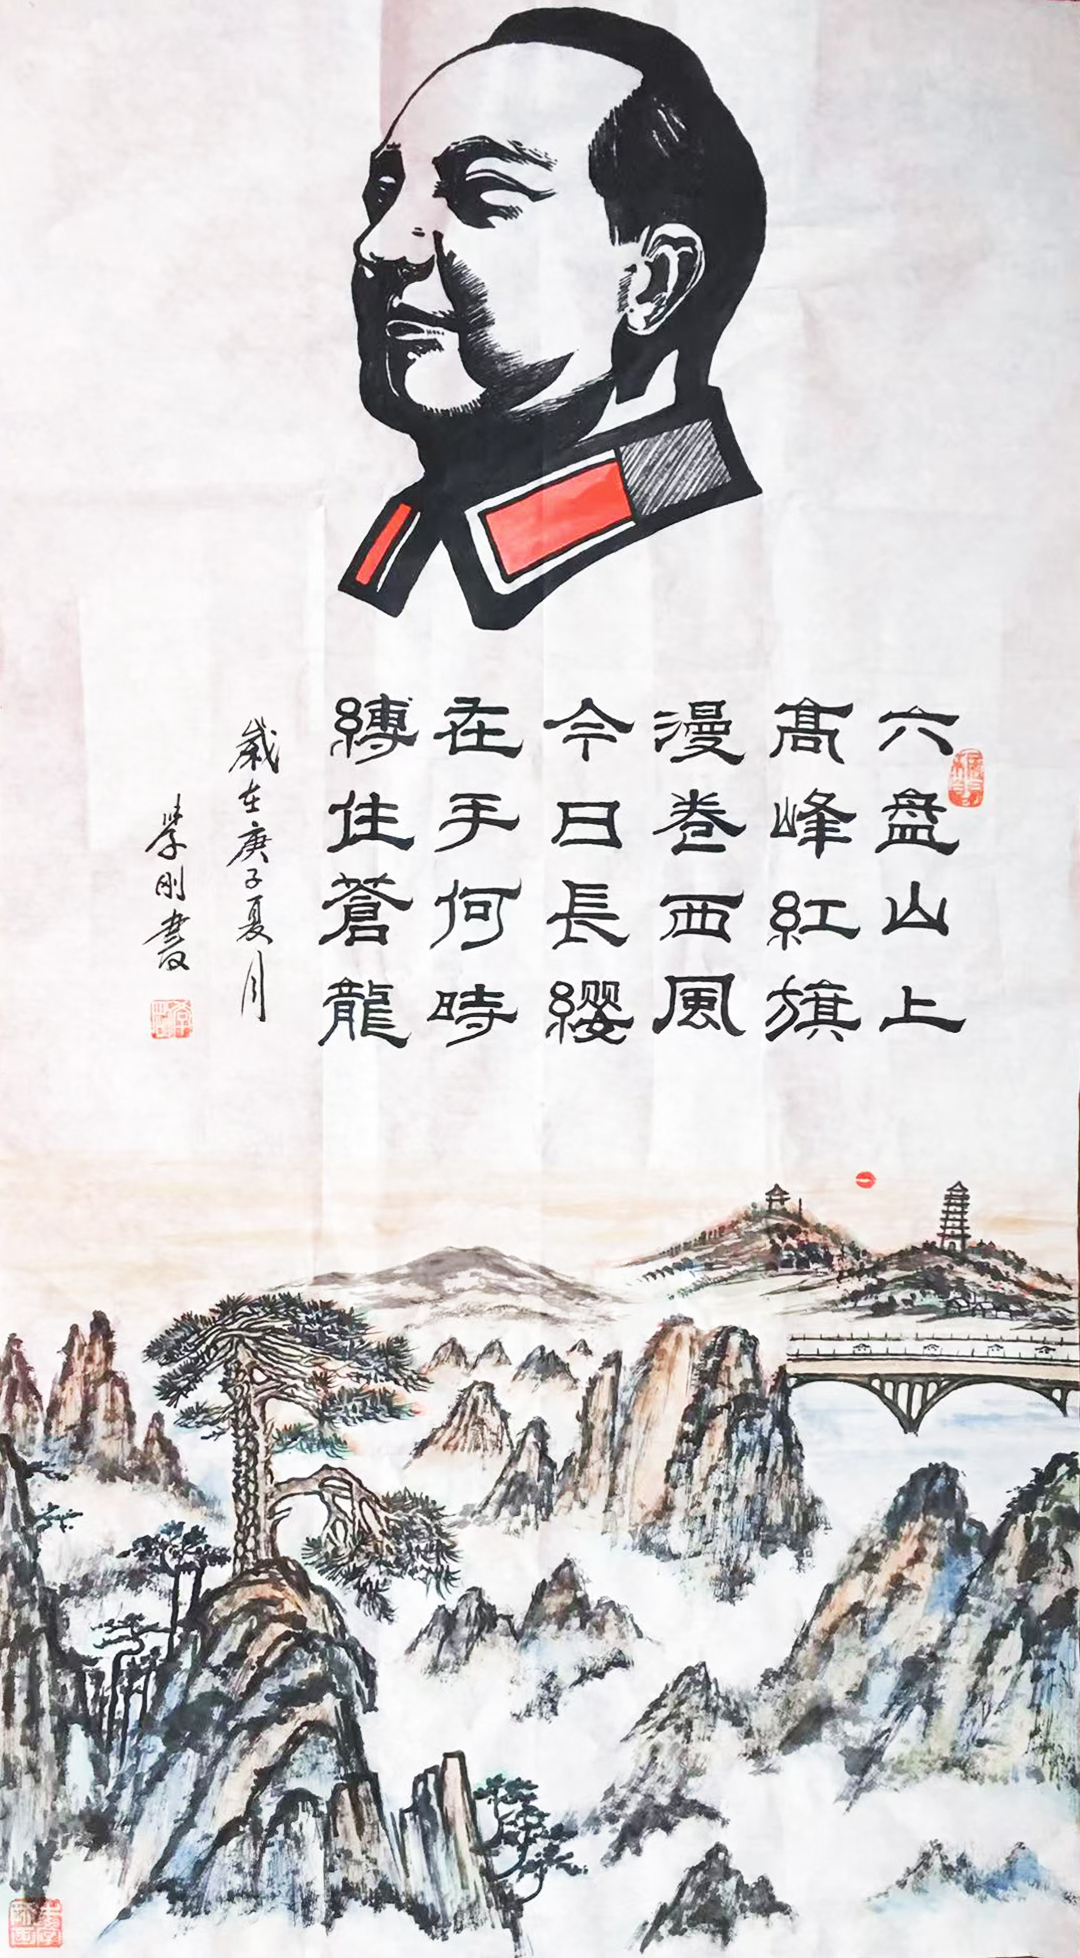 六盘山上
髙峰紅旗
漫卷西風
今日長纓
在手何時
縛住蒼龍
歲在庚子夏月
學剛書